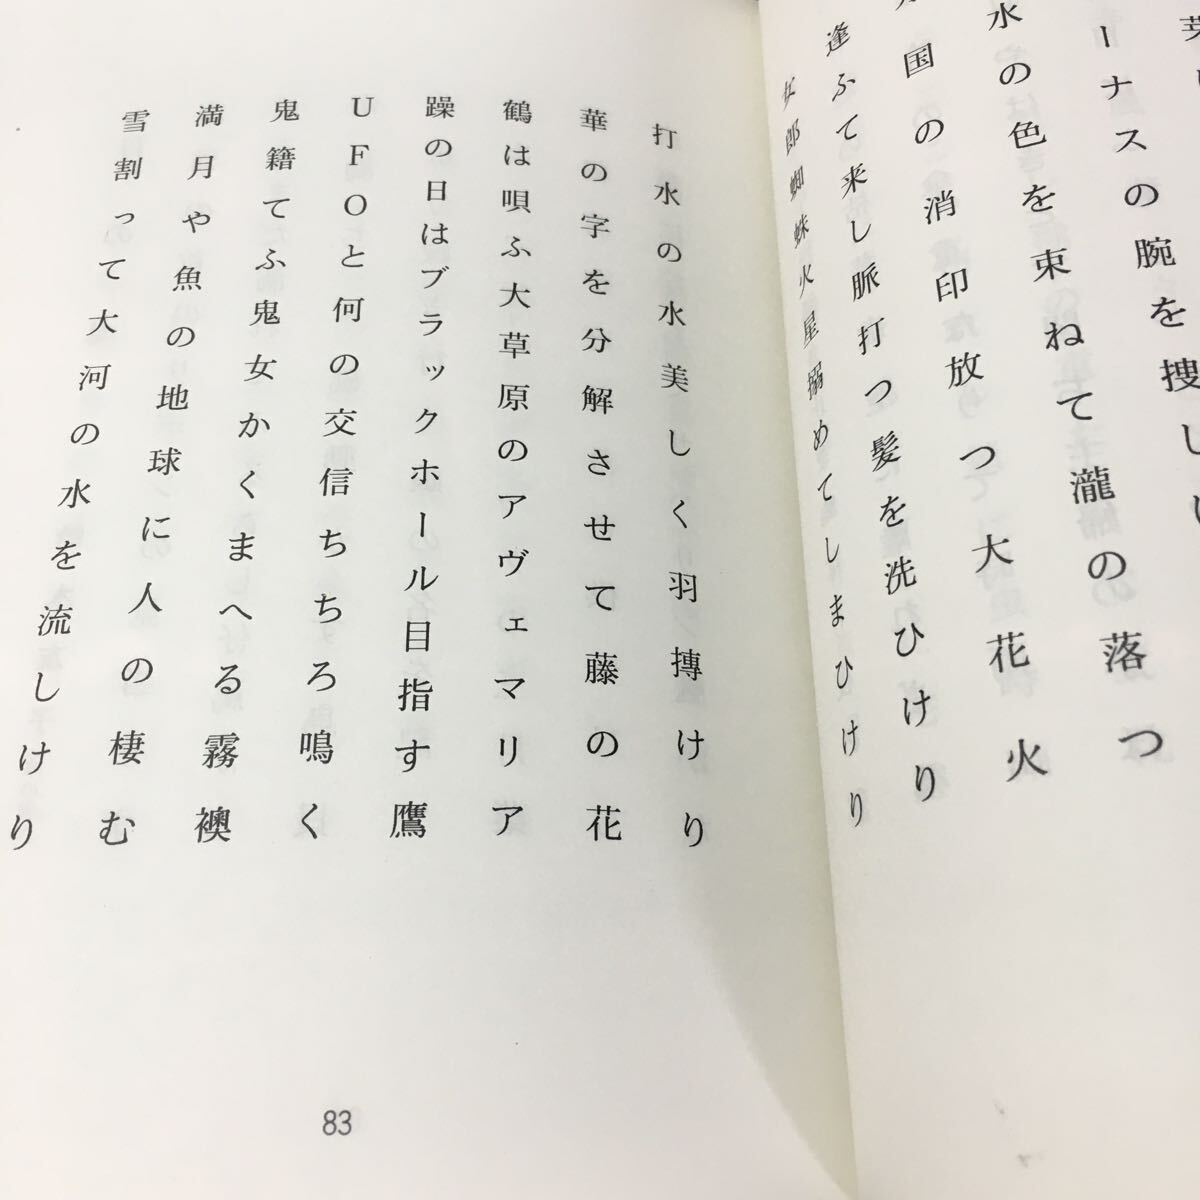 ーナスの腕を捜し
水の色を束ねて瀧の落つ
国の消印放つ大花火
逢ふて来し脈打つ髪を洗ひけり
女郎蜘蛛火星搦めてしまひけり
打水の水美しく羽摶けり
華の字を分解させて藤の花
鶴は唄ふ大草原のアヴェマリア
躁の日はブラックホール目指す鷹
UFOと何の交信ちちろ鳴く
鬼籍てふ鬼女かくまへる霧襖
満月や魚の地球に人の棲む
雪割って大河の水を流しけり
83